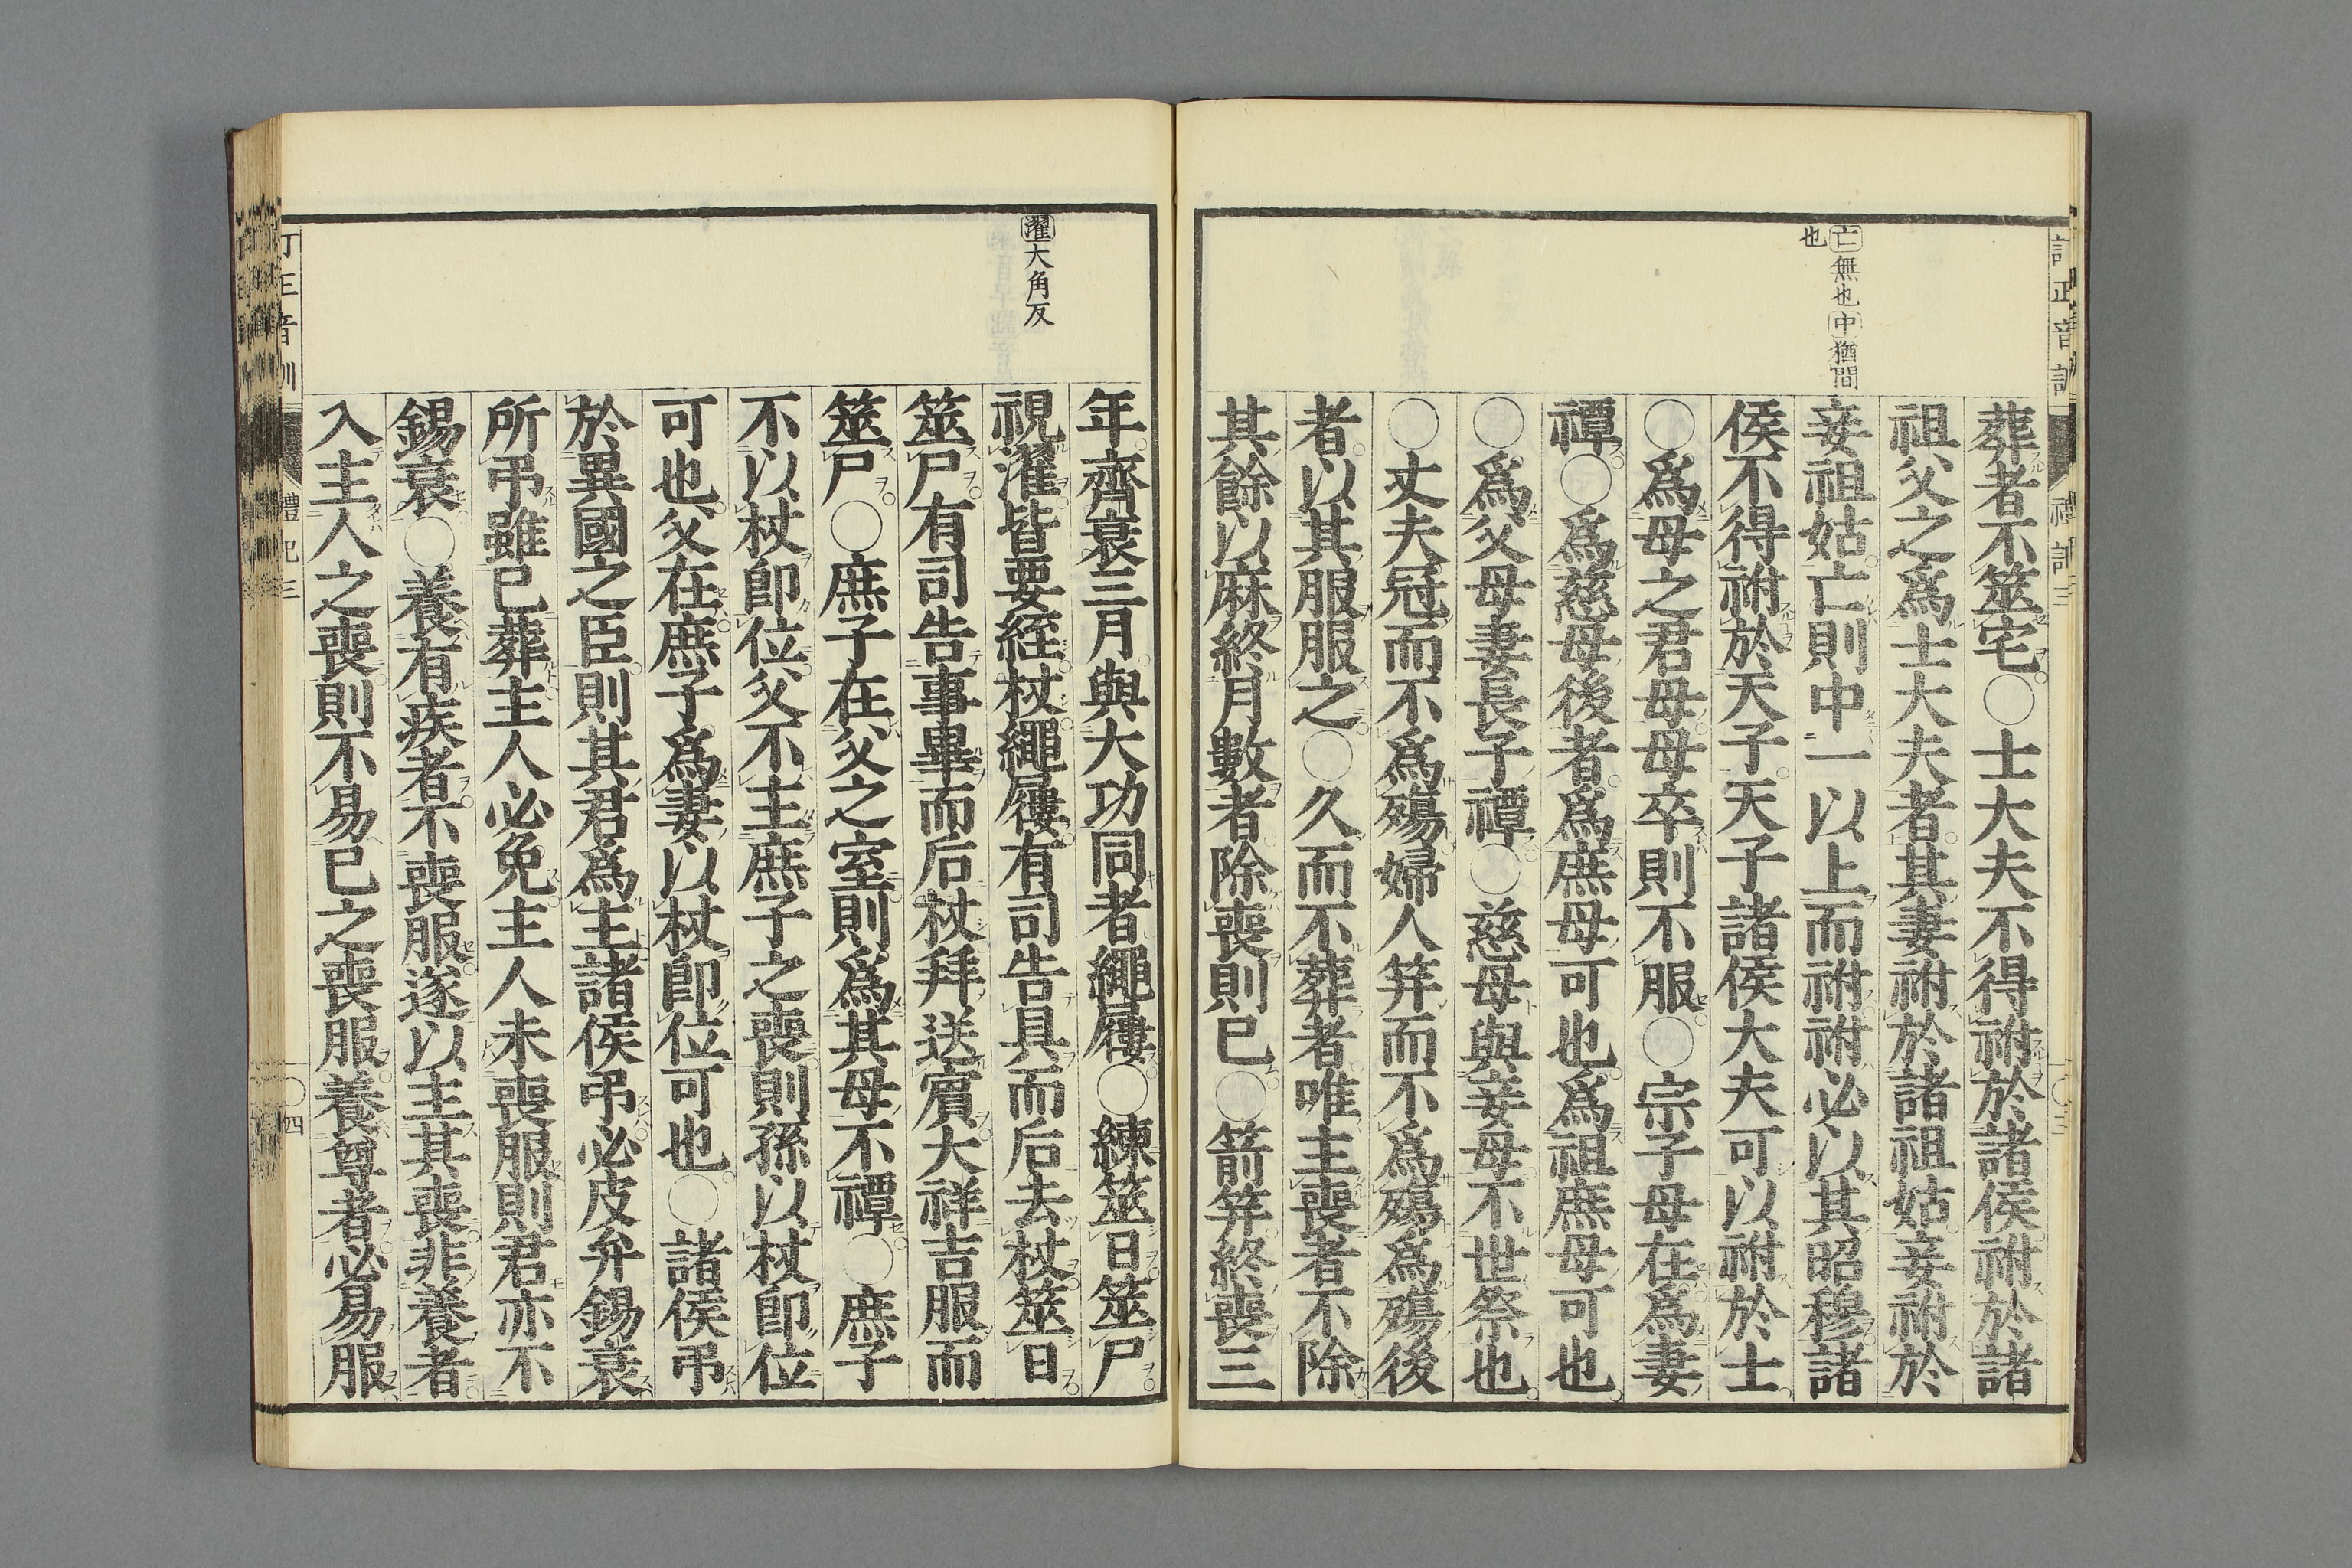 亡無也中猶閒
也
葬者不筮宅○士大夫不得祔於諸侯祔於諸
祖父之爲士大夫者其妻祔於諸祖姑妾祔於
妾祖姑亡則中一以上而祔祔必以其昭穆諸
侯不得祔於天子天子諸侯大夫可以祔於士
○爲母之君母母卒則不服○宗子母在爲妻
禫○爲慈母後者爲庶母可也爲祖庶母可也
○爲父母妻長子禫○慈母與妾母不世祭也
○丈夫冠而不爲殤婦人笄而不爲殤爲殤後
者以其服服之○久而不葬者唯主喪者不除
其餘以麻終月數者除喪則已○箭笄終喪三
濯大角反
年齊衰三月與大功同者繩屨○練筮日筮尸
視濯皆要絰杖繩屨有司告具而后去杖筮日
筮尸有司告事畢而后杖拜送賔大祥吉服而
筮尸○庶子在父之室則爲其母不禫○庶子
不以杖卽位父不主庶子之喪則孫以杖卽位
可也父在庶子爲妻以杖卽位可也○諸侯弔
於異國之臣則其君爲主諸侯弔必皮弁錫衰
所弔雖已葬主人必免主人未喪服則君亦不
錫衰○養有疾者不喪服遂以主其喪非養者
入主人之喪則不易已之喪服養尊者必易服
禮記三
四